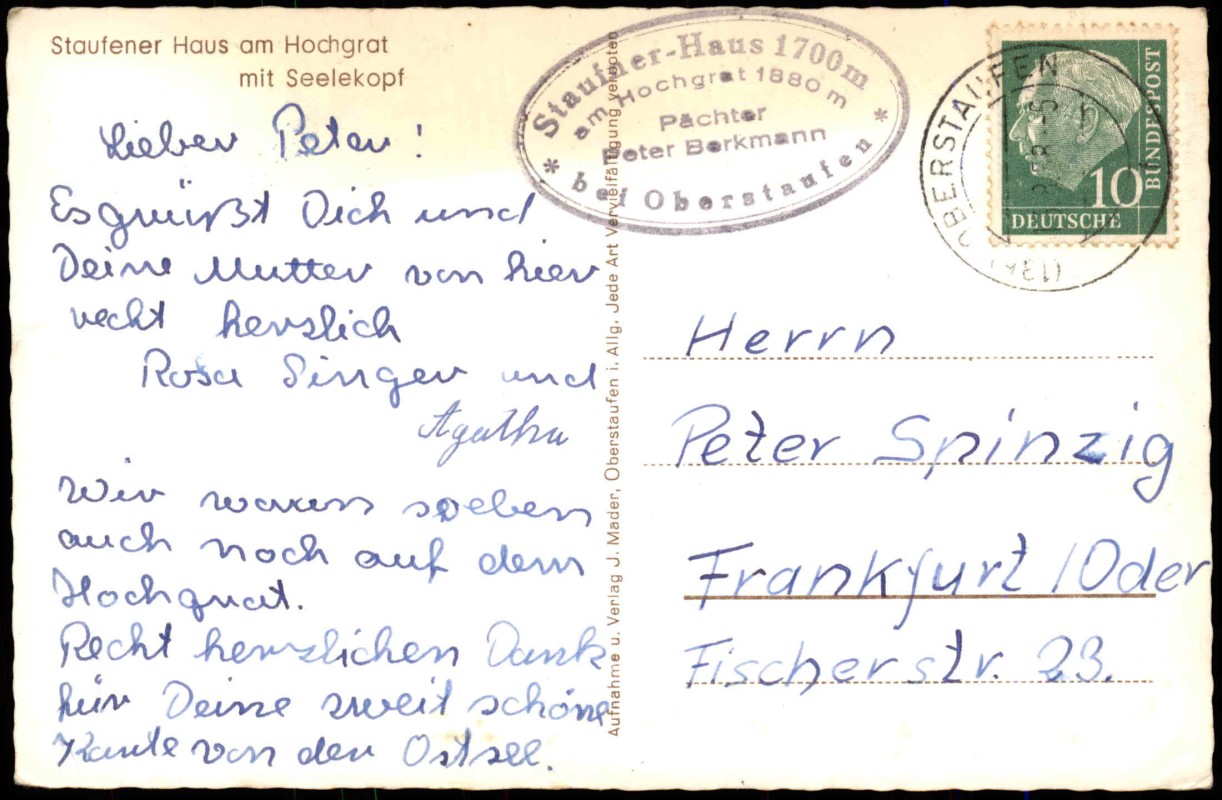 Staufener Haus am Hochgrat
mit Seelekopf
Lieber Peter!
Es grüßt Dich und
Deine Mutter von hier
recht herzlich
Rosa Singer und
Agatha
Wir waren soeben
auch noch auf dem
Hochgrat.
Recht herzlichen Dank
für Deine zweit schöne
Karte von der Ostsee.
Aufnahme u. Verlag J. Mader, Oberstaufen i. Allg. Jede Art Vervielfältigung verboten
Staufner-Haus 1700m
am Hochgrat 1880m
Pächter
Peter Berkmann
* bei Oberstaufen *
OBERSTAUFEN
(13
10
DEUTSCHE
BUNDESPOST
Herrn
Peter Spinzig
Frankfurt/Oder
Fischerstr. 23.